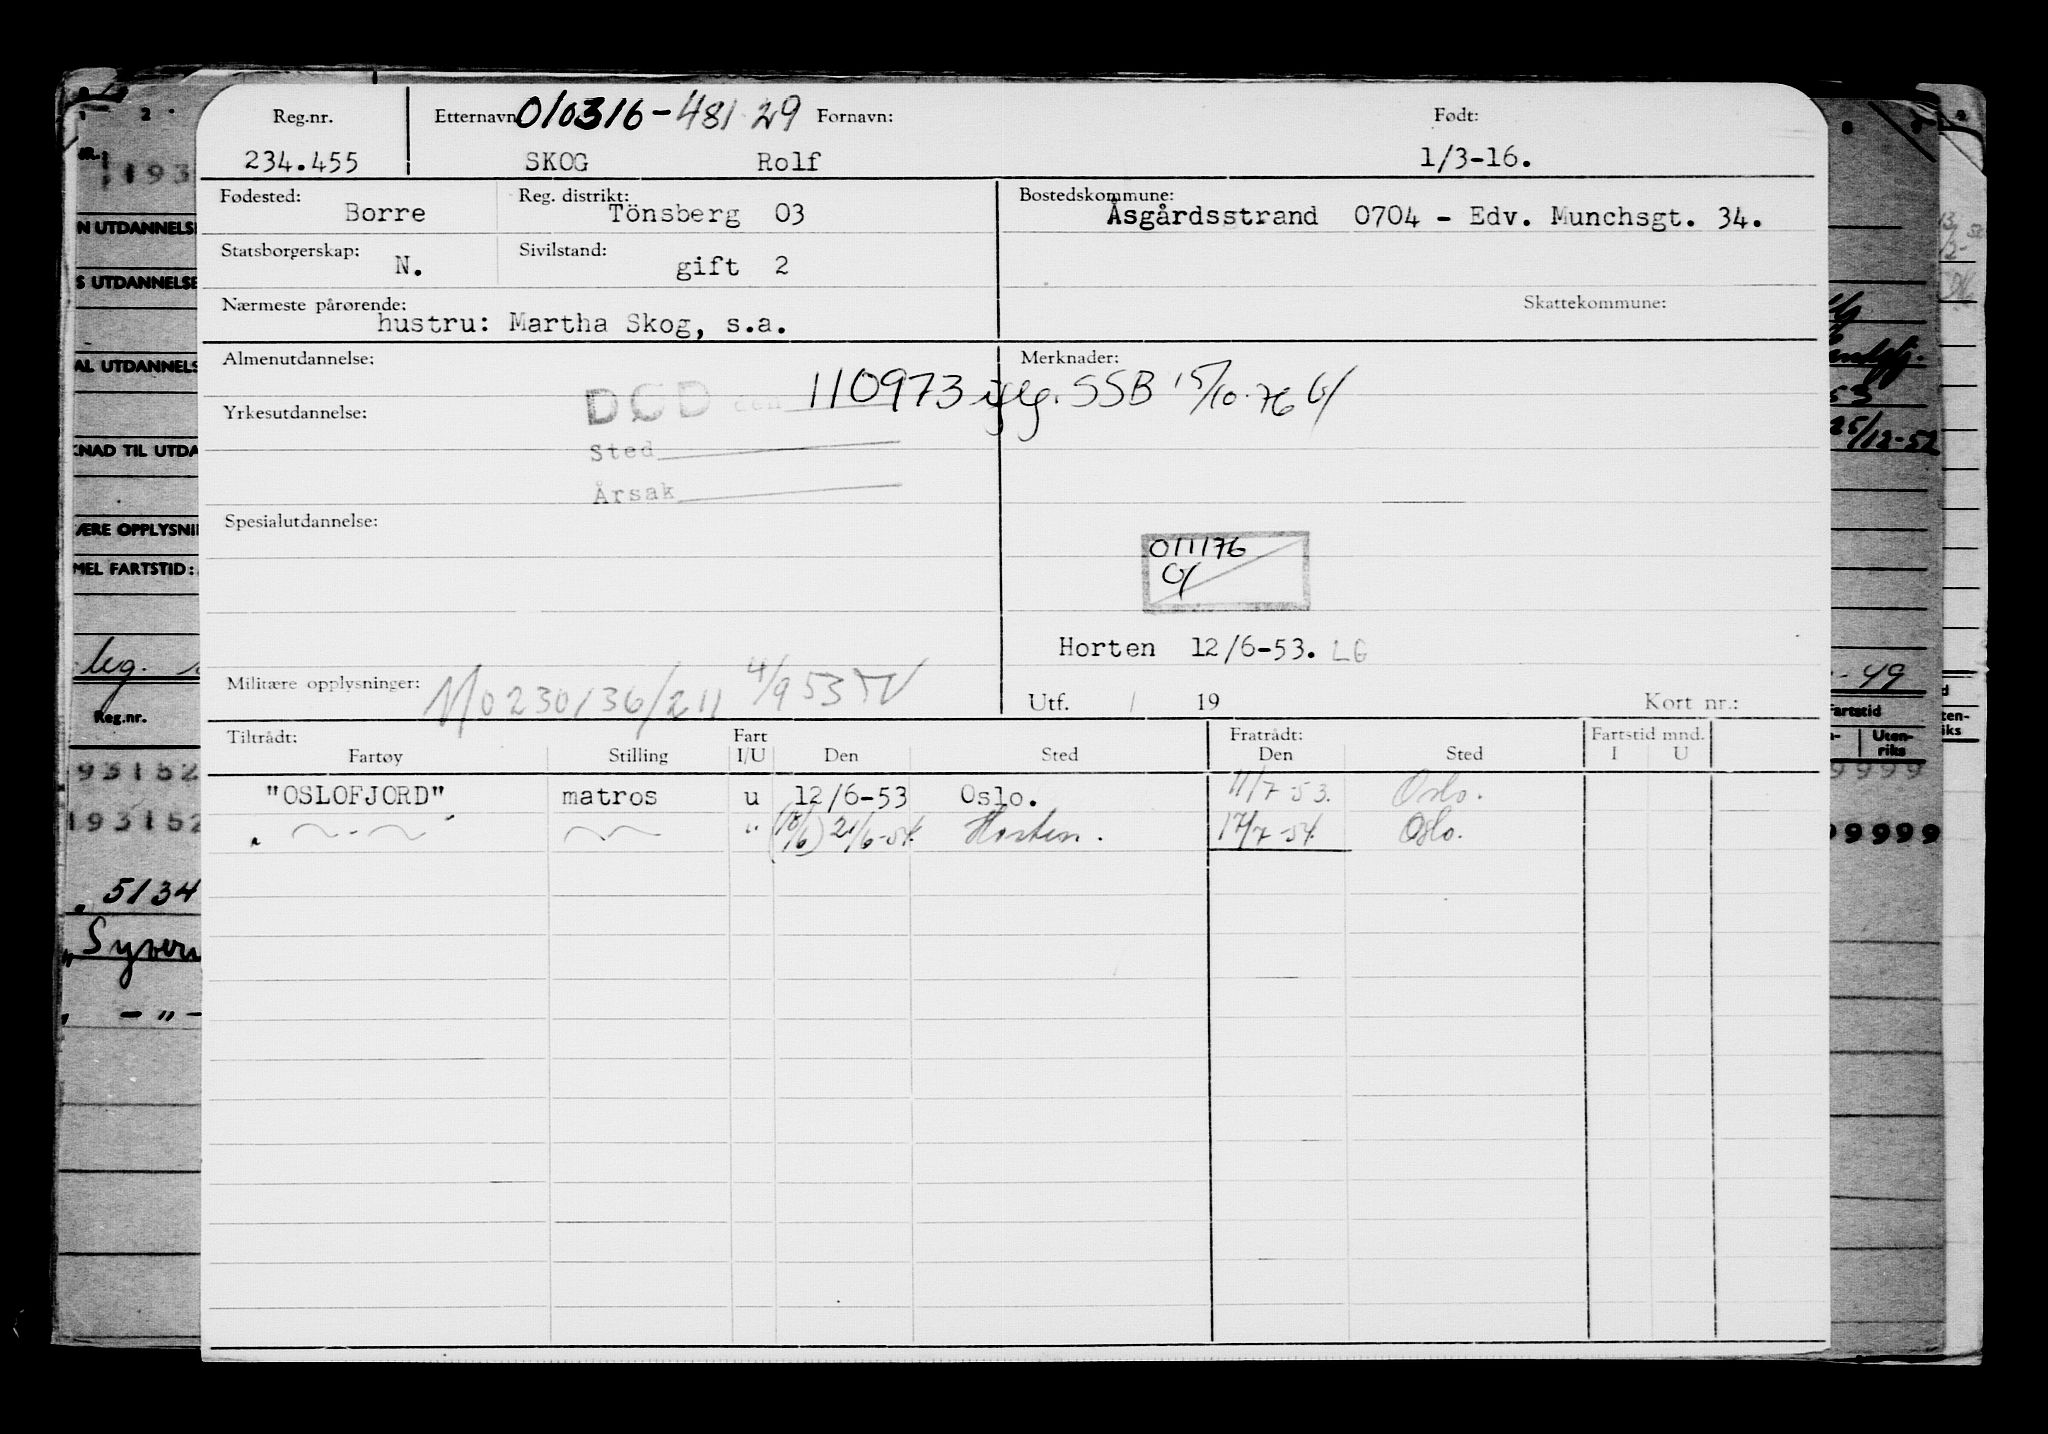 Reg.nr. Etternavn 010316-481 29 Fornavn: Født:
234.455 SKOG Rolf 1/3-16.
Fødested: Borre Reg. distrikt: Tönsberg 03 Bostedskommune: Åsgårdsstrand 0704 - Edv. Munchsgt. 34.
Statsborgerskap: N. Sivilstand: gift 2
Nærmeste pårørende: hustru: Martha Skog, s.a. Skattekommune:
Almenutdannelse: Merknader:
DØD den 110973 iflg. SSB 15/10-76
Yrkesutdannelse:
Sted
Årsak
Spesialutdannelse:
011176
Horten 12/6-53. LG
Militære opplysninger: 0230136/211 4/9 53
Utf. / 19 Kort nr.:
Tiltrådt: Fart Fratrådt: Fartstid mnd.
Fartøy Stilling I/U Den Sted Den Sted I U
"OSLOFJORD" matros u 12/6-53 Oslo. 11/7-53. Oslo.
" — " — " (18/6) 21/6-54. Horten. 17/7-54. Oslo.
1 2
193
N UTDANNELSE
S UTDANNELSE
AL UTDANNELS
KNAD TIL UTDA
ÆRE OPPLYSNI
MEL FARTSTID:
leg.
Reg.nr.
93152
193152
5134
"Syvern
- " -
53
25/12-52
-49
Fartstid
Uten-
riks
9999
99999